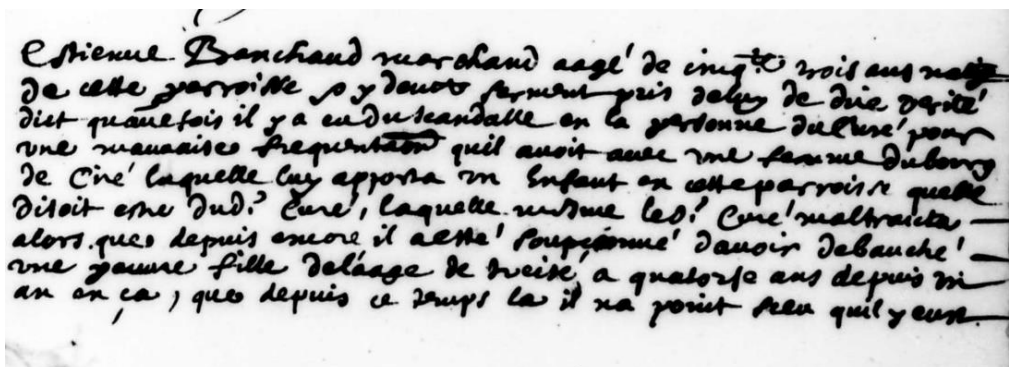 Estienne Banchaud marchand aagé de cinq.te trois ans natif
de cette parroisse cy devant serment pris deluy de dire verité
dict qu'autrefois il y a eu du scandalle en la personne du Curé pour
une mauvaise frequentaon quil avoit avec une femme du bourg
de Ciré laquelle luy apporta un Enfant en cette parroisse quelle
disoit estre dud.t Curé, laquelle mesme led.t Curé maltraicta
alors, que depuis encore il a esté soupçonné davoir debauché
une pauvre fille de laage de treise a quatorse ans depuis un
an en ça, que depuis ce temps la il na point sceu quil y eust